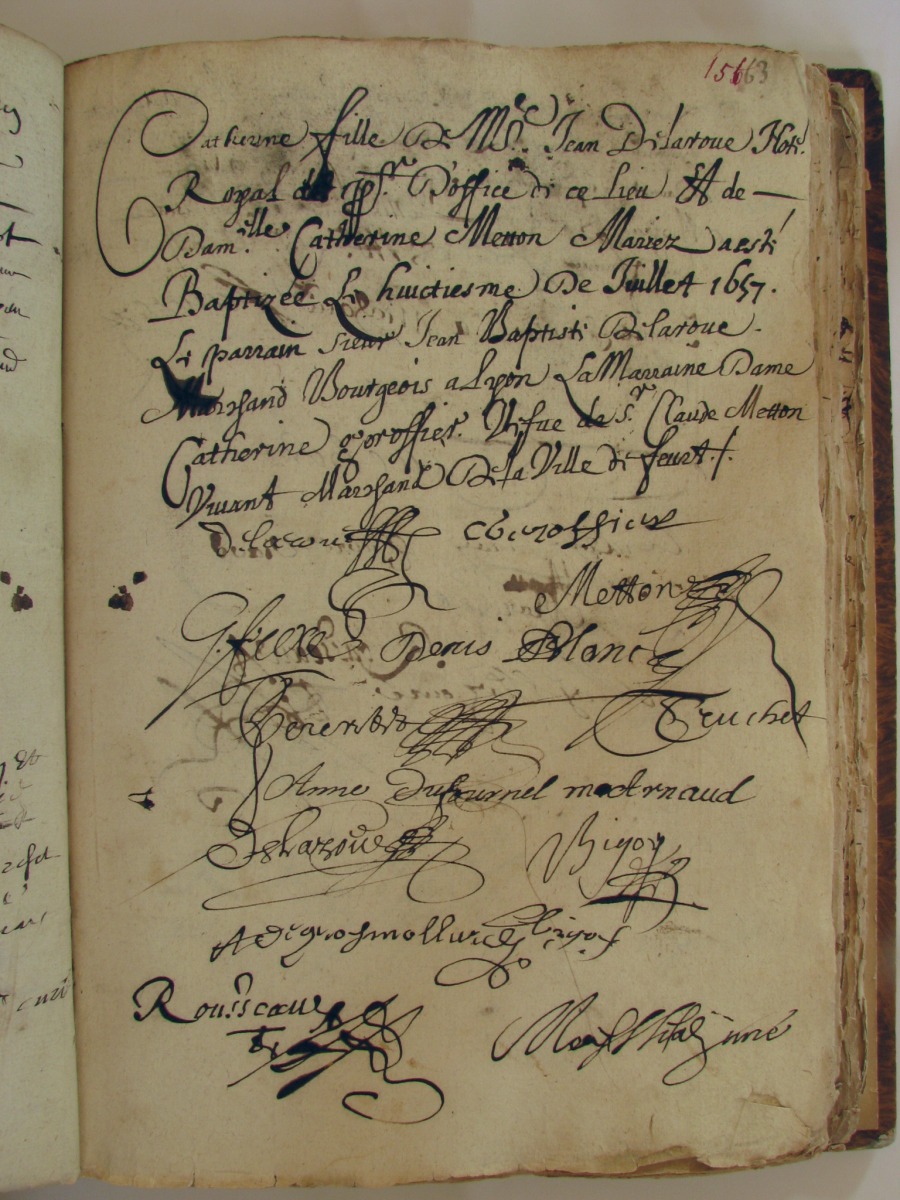 15663
Catherine fille De Mre. Jean Delaroue Notre.
Royal et pr. D'office de ce lieu Et de —
Dam.ille Catherine Metton Mariez a esté
Baptizée Le huictiesme De Juillet 1657.
Le parrain sieur Jean Baptiste Delaroue.
Marchand Bourgeois a Lyon La Marraine Dame
Catherine groffier. Vefue de sr. Claude Metton
Vivant Marchand De la Ville de feurt.
Delaroue C Groffier
Metton
Denis Blanc
Teuchet
Anne Dufournel m Arnaud
Delaroue Bigot
Rousseau